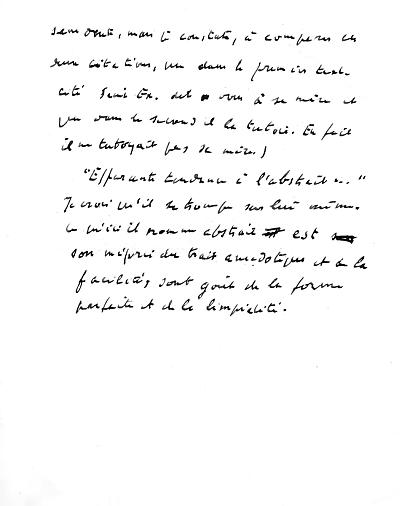 sans doute, mais je constate, à comparer ces
deux citations, que dans le premier texte
cité Saint Ex. dit vous à sa mère et
que dans le second il la tutoie. En fait
il ne tutoyait pas sa mère.)
"Effarante tendance à l'abstrait..."
Je crois qu'il se trompe sur lui même.
Ce qu'ici il nomme abstrait est
son mépris du trait anecdotique et de la
facilité, sont goût de la forme
parfaite et de la limpidité.